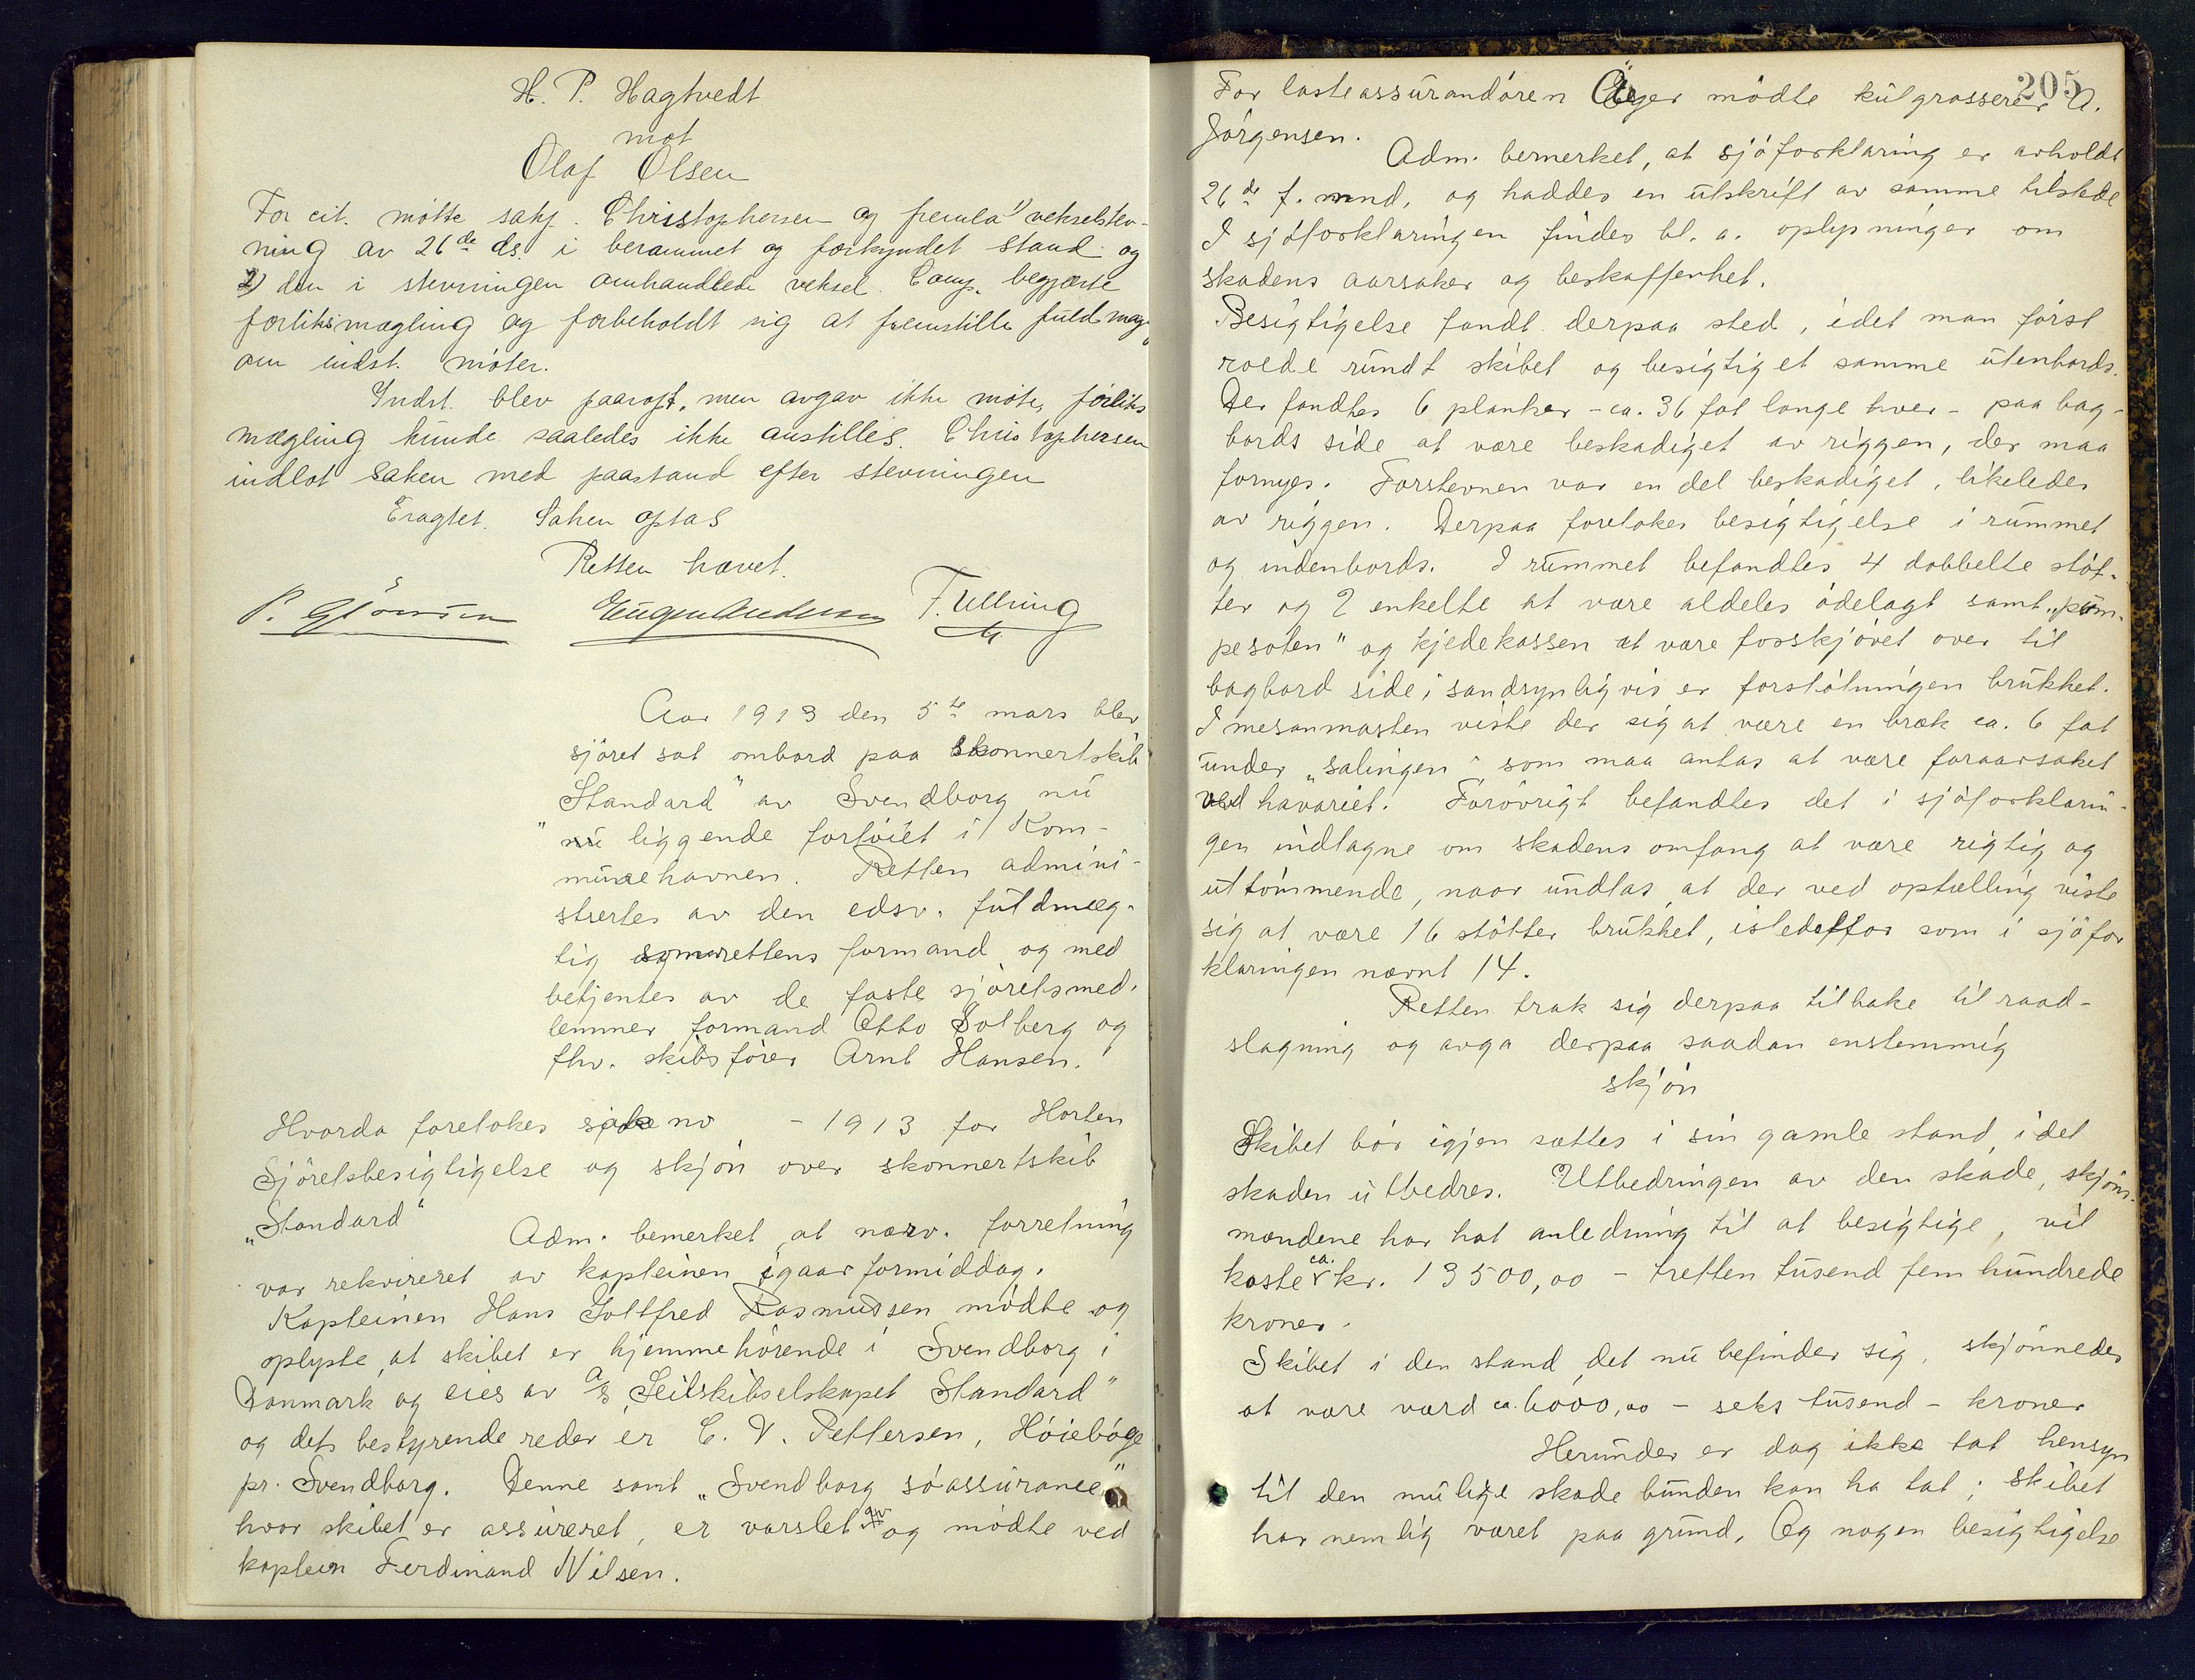 H. P. Hagtvedt
mot
Olaf Olsen
For cit. møtte sakf. Christophersen og fremla 1) vekselstev-
ning av 26de ds. i berammet og forkyndt stand og
2) den i stevningen omhandlede veksel. Comp. begjærte
forliksmægling og forbeholdt sig at fremstille fuldmag
om indst. møter.
Indst. blev paaropt, men avgav ikke møte, forliks
mægling kunde saaledes ikke anstilles. Christophersen
indlot saken med paastand efter stevningen
Eragtet. Saken optas
Retten hævet.
Eugen Andersen F. Ulling
Aar 1913 den 5te mars blev
sjöret sat ombord paa skonnertskib
Standard" av Svendborg nu
" nu liggende fortöiet i Kom-
munehavnen. Retten admini-
strertes av den edsv. fuldmæg-
tig som rettens formand og med
betjentes av de faste sjöretsmed-
lemmer formand Otto Solberg og
fhv. skibsförer Arnt Hansen.
Hvorda foretokes sak no - 1913 for Horten
Sjöretsbesigtigelse og skjön over skonnertskib
„Standard"
Adm. bemerket, at nærv. forretning
var rekvireret av kapteinen igaar formiddag.
Kapteinen Hans Gottfred Rasmussen mödte og
oplyste, at skibet er hjemmehörende i Svendborg i
Danmark og eies av A/S „Seilskibselskapet Standard"
og dets bestyrende reder er C. V. Pettersen, Höieböge
pr. Svendborg. Denne samt „Svendborg söassurance"
hvor skibet er assureret, er varslet og mödte ved
kaptein Ferdinand Nilsen.
205
For lasteassurandören mödte kulgrosserer A.
Jörgensen.
Adm. bemerket, at sjöforklaring er avholdt
26de f. mnd. og haddes en utskrift av samme tilstede
I sjöforklaringen findes bl. a. oplysninger om
skadens aarsaker og beskaffenhet.
Besigtigelse fandt derpaa sted, idet man först
roede rundt skibet og besigtiget samme utenbords.
Der fandtes 6 planker - ca. 36 fot lange hver - paa bag-
bords side at være beskadiget av riggen, der maa
fornyes. Forstevnen var en del beskadiget, likeledes
av riggen. Derpaa foretokes besigtigelse i rummet
og indenbords. I rummet befandtes 4 dobbelte stöt-
ter og 2 enkelte at være aldeles ödelagt samt „pum-
pesoten" og kjedekassen at være forskjövet over til
bagbord side; sandsynligvis er forstötningen brukket.
I mesanmasten viste der sig at være en bræk ca. 6 fot
under „salingen", som maa antas at være foraarsaket
ved havariet. Forövrigt befandtes det i sjöforklarin-
gen indtagne om skadens omfang at være rigtig og
uttömmende, naar undtas, at der ved optælling viste
sig at være 16 stötter brukket, istedetfor som i sjöfor
klaringen nævnt 14.
Retten trak sig derpaa tilbake til raad-
slagning og avga derpaa saadan enstemmig
skjön
Skibet bör igjen sættes i sin gamle stand, idet
skaden utbedres. Utbedringen av den skade, skjöns-
mændene har hat anledning til at besigtige, vil
koste ca. kr. 13500,00 - tretten tusend fem hundrede
kroner.
Skibet i den stand, det nu befinder sig, skjönnedes
at være værd ca. 6000,00 - seks tusend - kroner
Herunder er dog ikke tat hensyn
til den mulige skade bunden kan ha tat; skibet
har nemlig været paa grund. Og nogen besigtigelse